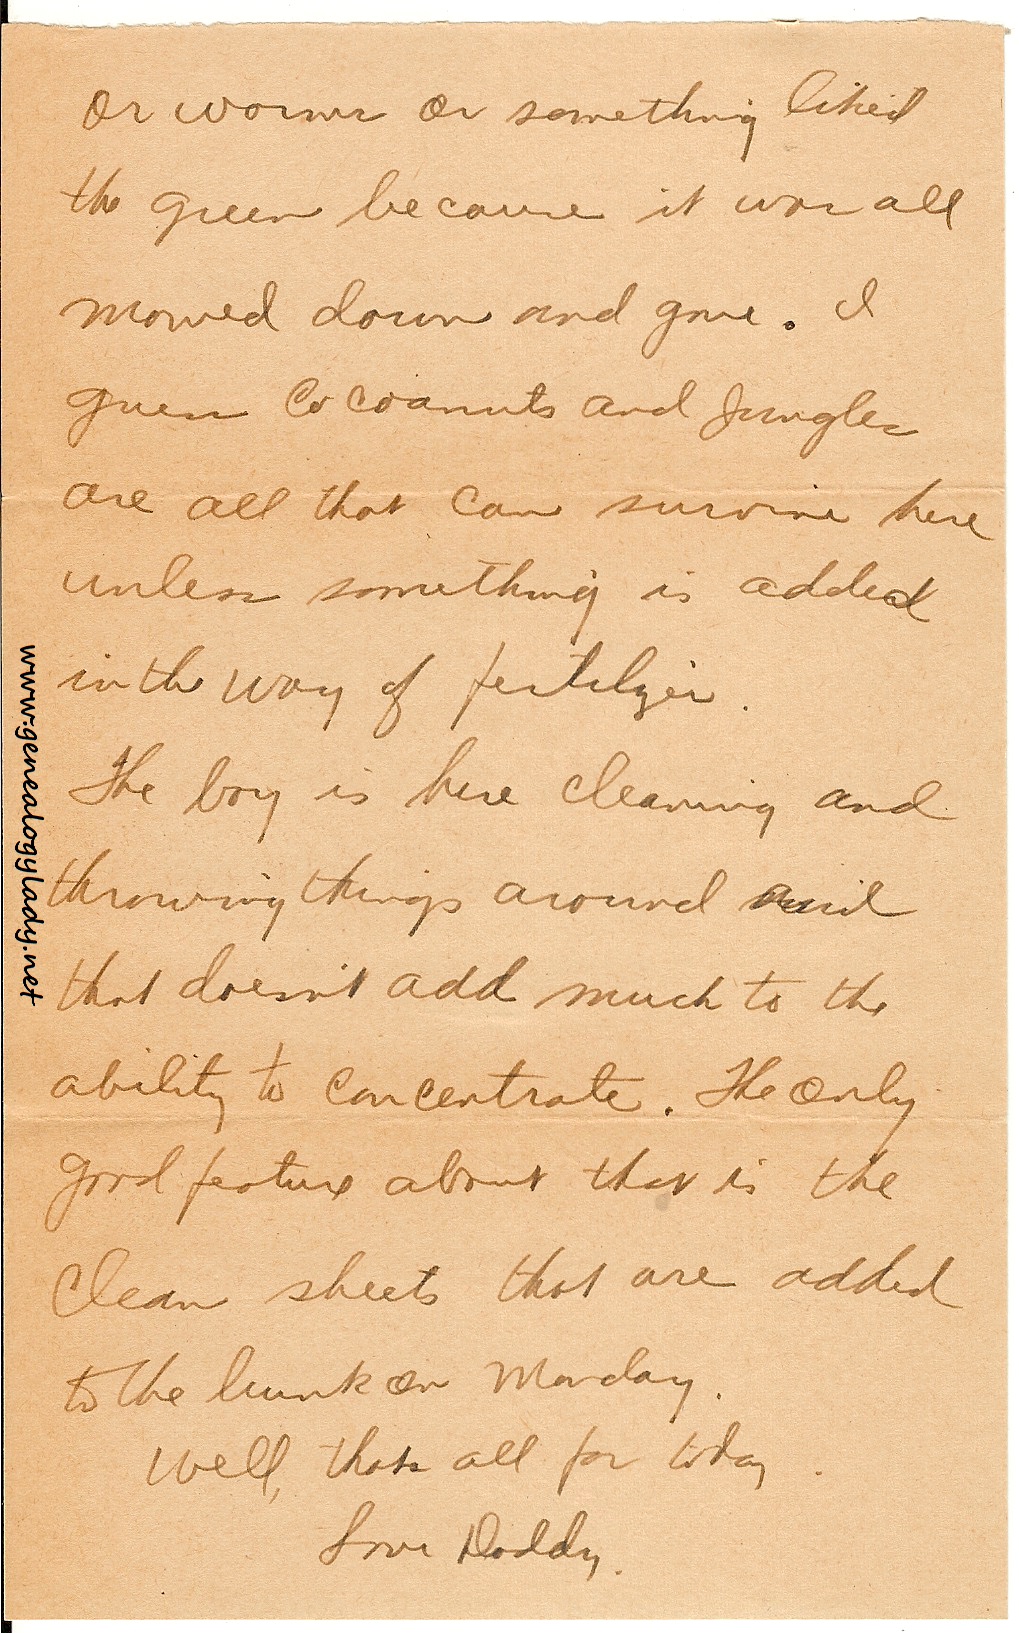 or worms or something liked
the green because it was all
mowed down and gone. I
guess Cocoanuts and Jungles
are all that can survive here
unless something is added
in the way of fertilzer.
The boy is here cleaning and
throwing things around and
that doesn't add much to the
ability to concentrate. The only
good feature about that is the
clean sheets that are added
to the bunk on Monday.
Well, thats all for today.
Love Daddy.
www.genealogylady.net